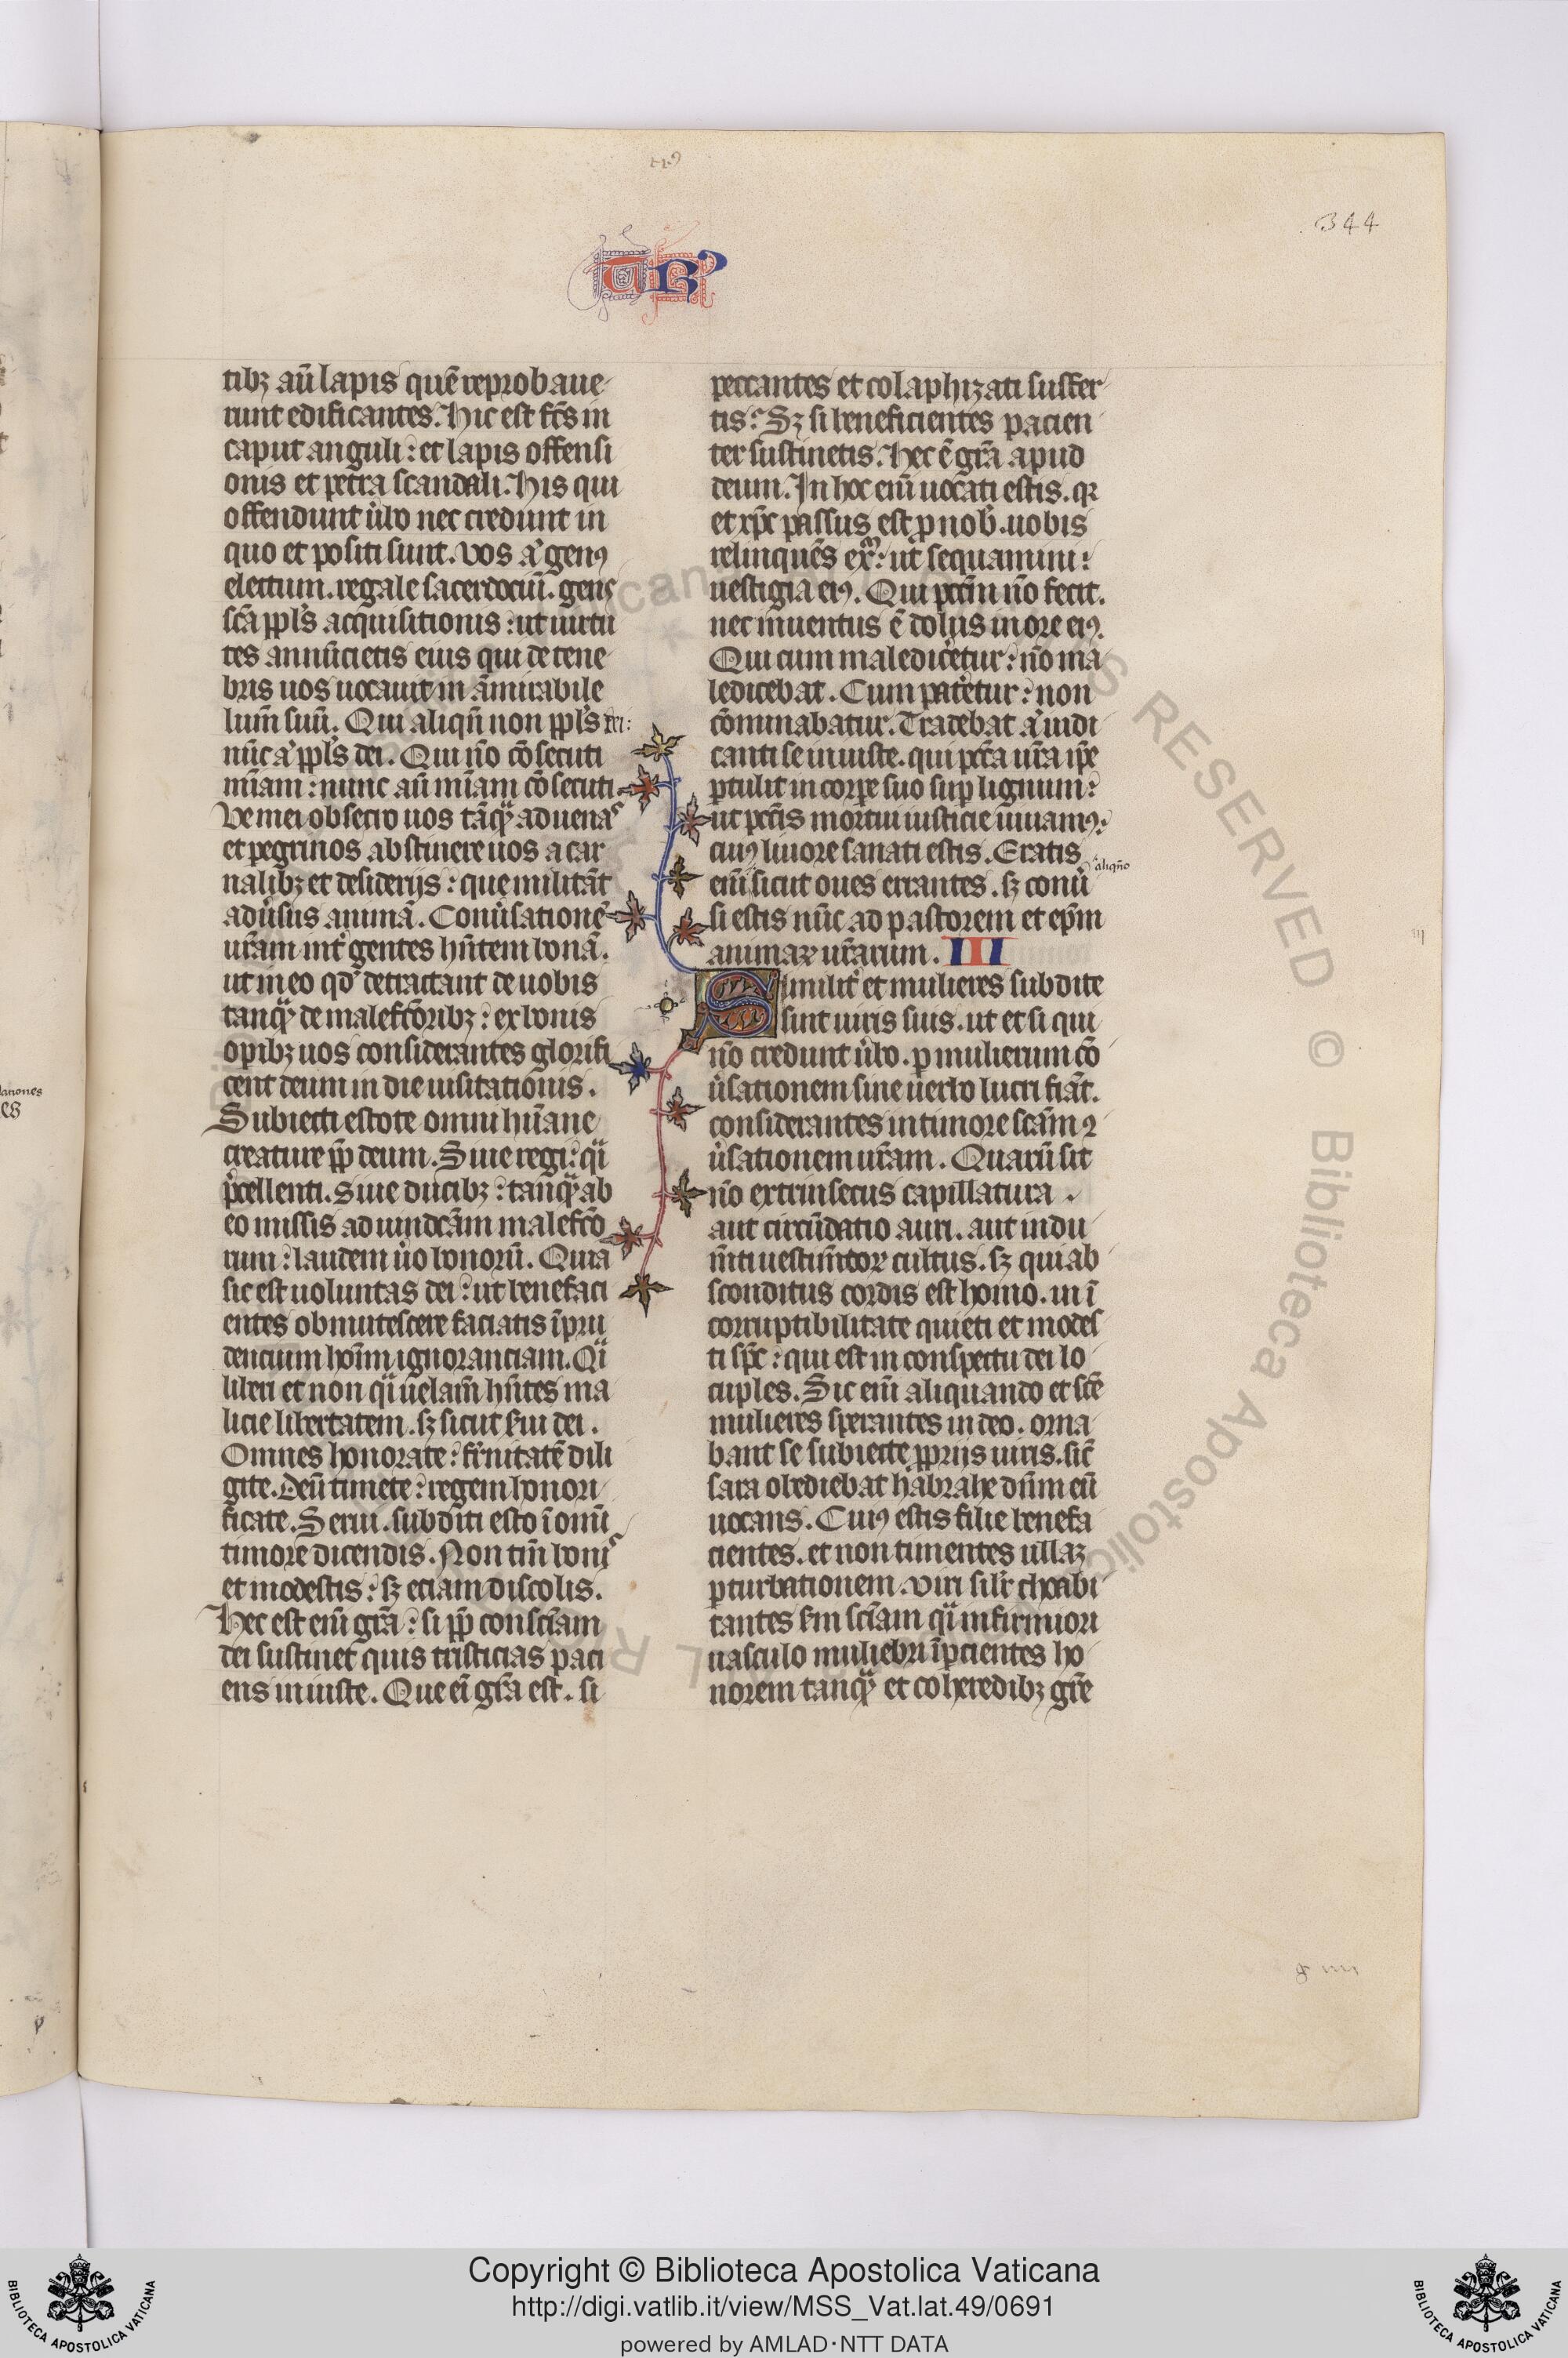 344
TRꝰ
tibꝫ aũ lapis quẽ reprobaue
runt edificantes. Hic est fc̃s in
caput anguli: et lapis offensi
onis et petra scandali. His qui
offendunt ũbo nec credunt in
quo et positi sunt. Vos aͥ genꝰ
electum. regale sacerdociũ. gens
sc̃a ppl̃s acquisitionis: ut uirtu
tes annũcietis eius qui de tene
bris uos uocauit in ãmirabile
lum̃ suũ. Qui aliqñ non ppl̃s dei:
nũc aͥ ppl̃s dei. Qui ño cõsecuti
mĩam: nunc aũ mĩam cõsecuti.
Ve mei obsecro uos tãqͣꝫ aduenas
et pegrinos abstinere uos a car
nalibꝫ et desiderijs: que militãt
adũsus animã. Conũsationẽ
ur̃am int̃ gentes hñtem bonã.
ut in eo qd̾ detractant de uobis
tanqͣꝫ de malefc̃oribꝫ: ex bonis
opibꝫ uos considerantes glorifi
cent deum in die uisitationis.
Subiecti estote omni hũane
creature pp̃ deum. Siue regi: qͣi
p̃cellenti. Siue ducibꝫ: tanqͣꝫ ab
eo missis ad uindc̃am malefc̃o
rum: laudem ũo bonorũ. Quia
sic est uoluntas dei: ut benefaci
entes obmutescere faciatis ĩpru
dencium hoĩm ignoranciam. Qͣi
liberi et non qͣi uelam̃ hñtes ma
licie libertatem. sꝫ sicut s̃ui dei.
Omnes honorate: fr̃nitatẽ dili
gite. Deũ timete: regem honori
ficate. Serui. subditi esto ĩ om̃i
timore dicendis. Non tm̃ bonis
et modestis: sꝫ eciam discolis.
Hec est eni᷒ gr̃a: si pp̃ consciãm
dei sustinet quis tristicias paci
ens iniuste. Que eĩ gr̃a est. si
peccantes et colaphizati suffer
tis? Sꝫ si beneficientes pacien
ter sustinetis. Hec ẽ gr̃a apud
deum. In hoc eni᷒ uocati estis. qꝛ
et xp̃c passus est ꝓ nob̃. uobis
relinquẽs exͫ: ut sequamini:
uestigia eiꝰ. Qui pctm̃ ño fecit.
nec inuentus ẽ dolus in ore eiꝰ.
Qui cum maledicẽtur: ño ma
ledicebat. Cum patẽtur: non
cõminabatur. Tradebat aͥ iudi
canti se iniuste. qui pctã ur̃a ip̃e
ꝑtulit in corpe suo suꝑ lignum:
ut pctĩs mortui iusticie uiuamꝰ:
cuiꝰ liuore sanati estis. Eratis
aliqño
eni᷒ sicut oues errantes. sꝫ conũ
si estis nũc ad pastorem et ep̃m
animaꝝ ur̃arum. III
Similit̃ et mulieres subdite
sint uiris suis. ut et si qui
ño credunt ũbo. ꝑ mulierum cõ
ũsationem sine uerbo lucri fiãt.
considerantes in timore scãm ꝯ
ũsationem ur̃am. Quarũ sit
ño extrinsecus capillatura.
aut circũdatio auri. aut indu
m̃ti uestim̃toꝝ cultus. sꝫ qui ab
sconditus cordis est homo. in ĩ
corruptibilitate quieti et modes
ti sp̃c: qui est in conspectu dei lo
cuples. Sic eni᷒ aliquando et sc̃e
mulieres sperantes in deo. orna
bant se subiecte ꝓprijs uiris. sic̃
sara obediebat habrahe dñm eũ
uocans. Cuiꝰ estis filie benefa
cientes. et non timentes ullaꝫ
ꝑturbationem. Viri sil̃r cohabi
tantes s̃m sciãm qͣi infirmiori
uasculo muliebri ĩpcientes ho
norem tanqͣꝫ et coheredibꝫ gr̃e
Copyright © Biblioteca Apostolica Vaticana
http://digi.vatlib.it/view/MSS_Vat.lat.49/0691
powered by AMLAD·NTT DATA
BIBLIOTECA APOSTOLICA VATICANA
BIBLIOTECA APOSTOLICA VATICANA